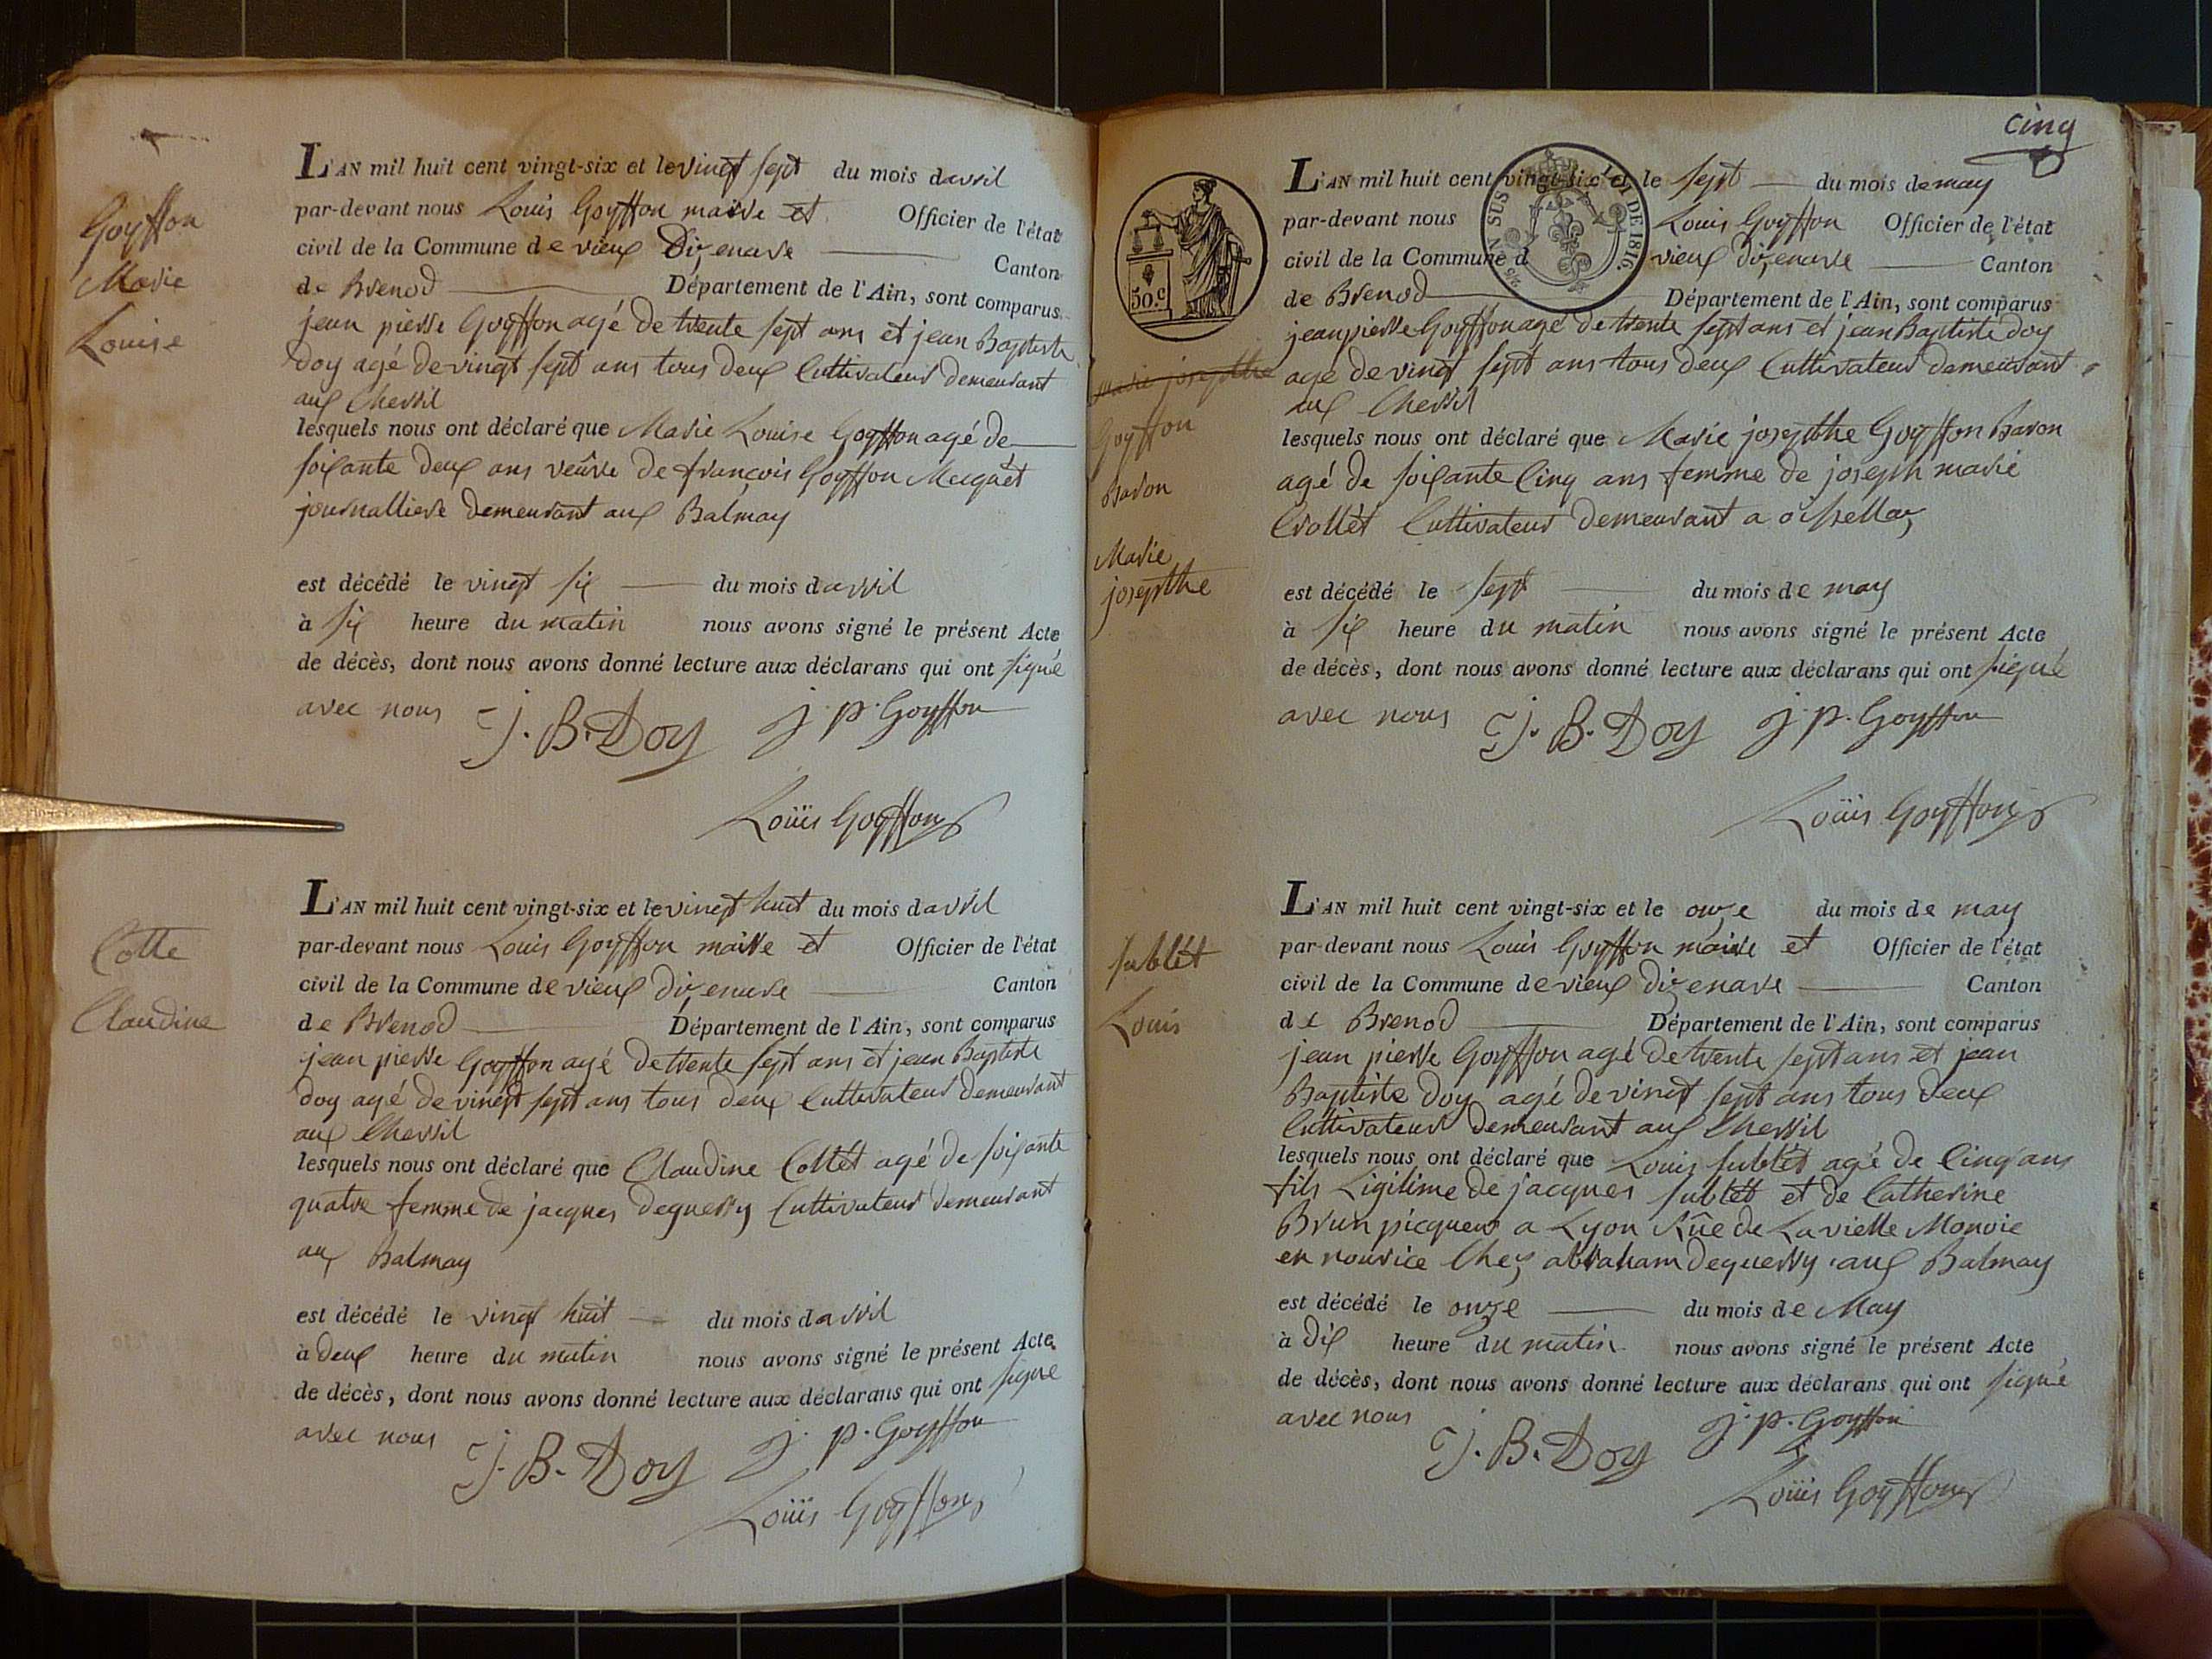 Goyffon
Marie
Louise
L'AN mil huit cent vingt-six et le vingt sept du mois davril
par-devant nous Louis Goyffon maire et Officier de l'état
civil de la Commune de vieux Dizenave Canton
de Brenod Département de l'Ain, sont comparus
jean pierre Goyffon agé de trente sept ans et jean Baptiste
doy agé de vingt sept ans tous deux Cultivateur demeurant
aux Chevril
lesquels nous ont déclaré que Marie Louise Goyffon agé de
soixante deux ans veûve de françois Goyffon
journalliere demeurant aux Balmay
est décédé le vingt six du mois davril
à six heure du matin nous avons signé le présent Acte
de décès, dont nous avons donné lecture aux déclarans qui ont signé
avec nous J. B. Doy j. p. Goyffon
Loüis Goyffon
Cotte
Claudine
L'AN mil huit cent vingt-six et le vingt huit du mois davril
par-devant nous Louis Goyffon maire et Officier de l'état
civil de la Commune de vieux dizenave Canton
de Brenod Département de l'Ain, sont comparus
jean pierre Goyffon agé de trente sept ans et jean Baptiste
doy agé de vingt sept ans tous deux Cultivateur demeurant
aux Chevril
lesquels nous ont déclaré que Claudine Cottét agé de soixante
quatre femme de jacques deguerry Cultivateur demeurant
aux Balmay
est décédé le vingt huit du mois davril
à deux heure du matin nous avons signé le présent Acte
de décès, dont nous avons donné lecture aux déclarans qui ont signé
avec nous J. B. Doy j. p. Goyffon
Loüis Goyffon
cinq
50.c
LOI DE 1816.
L'AN mil huit cent vingt-six et le sept du mois de may
par-devant nous Louis Goyffon Officier de l'état
civil de la Commune d vieux dizenave Canton
de Brenod Département de l'Ain, sont comparus
jean pierre Goyffon agé de trente sept ans et jean Baptiste doy
agé de vingt sept ans tous deux Cultivateur demeurant
aux Chevril
marie josepthe
Goyffon
Baron
Marie
josepthe
lesquels nous ont déclaré que Marie josepthe Goyffon Baron
agé de soixante Cinq ans femme de joseph marie
Crollét Cultivateur demeurant a oisellaz
est décédé le sept du mois de may
à six heure du matin nous avons signé le présent Acte
de décès, dont nous avons donné lecture aux déclarans qui ont signé
avec nous J. B. Doy j. p. Goyffon
Loüis Goyffon
sublét
Louis
L'AN mil huit cent vingt-six et le onze du mois de may
par-devant nous Louis Goyffon maire et Officier de l'état
civil de la Commune de vieux dizenave Canton
de Brenod Département de l'Ain, sont comparus
jean pierre Goyffon agé de trente sept ans et jean
Baptiste doy agé de vingt sept ans tous deux
Cultivateur demeurant aux Chevril
lesquels nous ont déclaré que Louis sublét agé de Cinq ans
fils Ligitime de jacques sublét et de Catherine
Brun picqueur a Lyon Rûe de La vielle Monoie
en nourice Chez abraham deguerry aux Balmay
est décédé le onze du mois de May
à dix heure du matin nous avons signé le présent Acte
de décès, dont nous avons donné lecture aux déclarans qui ont signé
avec nous J. B. Doy j. p. Goyffon
Loüis Goyffon